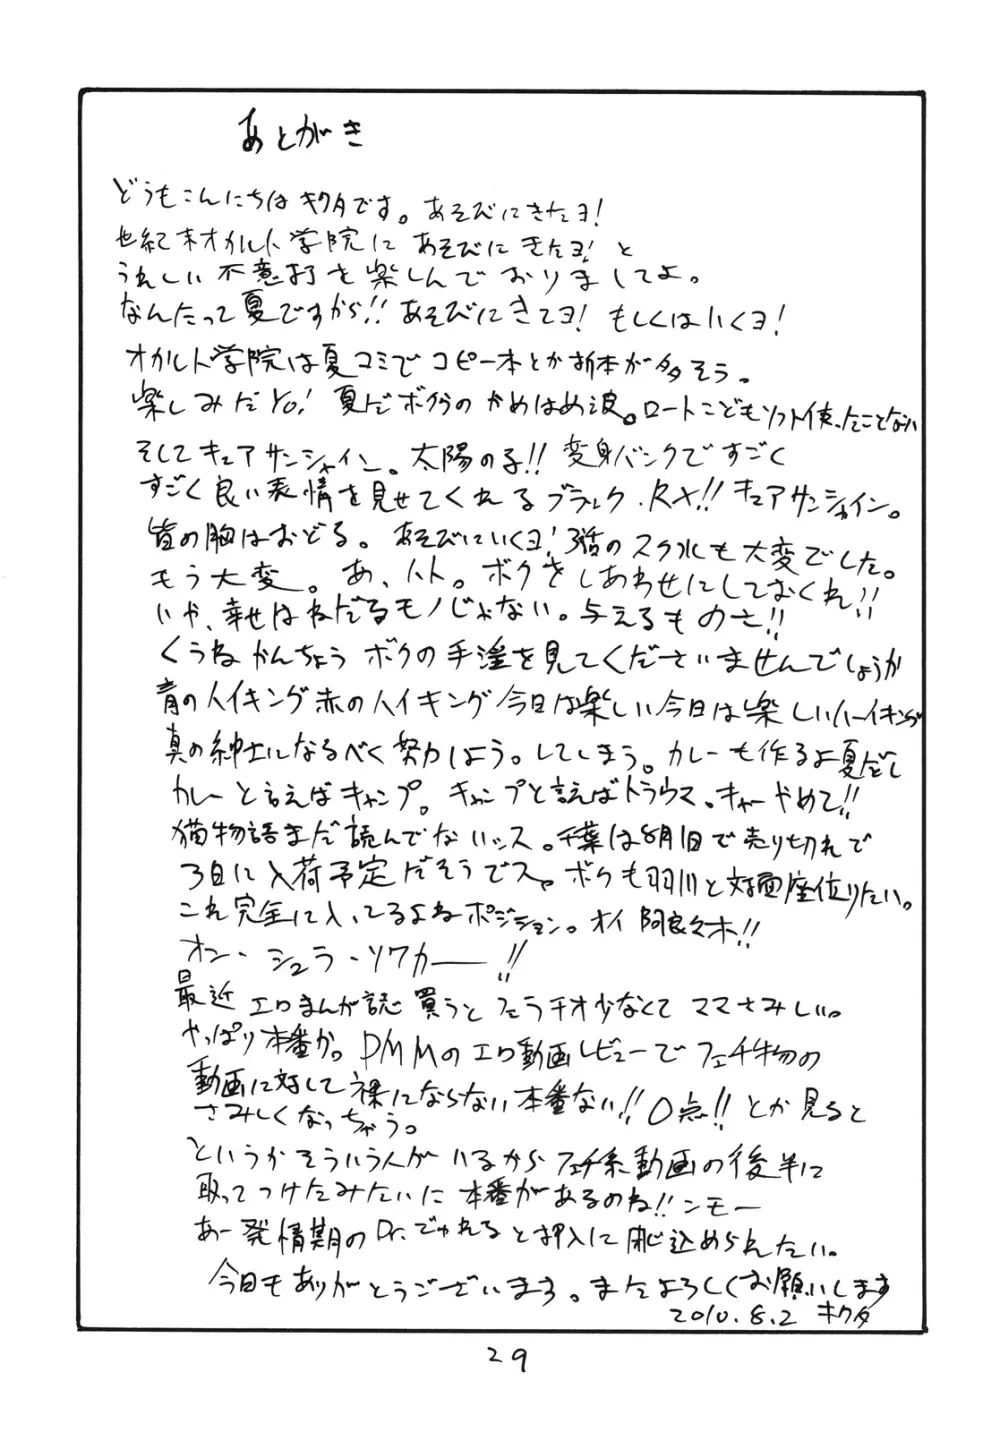 あとがき
どうもこんにちはキクタです。あそびにきたヨ!
世紀末オカルト学院にあそびにきたヨ!と
うれしい不意打を楽しんでおりましてよ。
なんたって夏ですから!!あそびにきてヨ!もしくはいくヨ!
オカルト学院は夏コミでコピー本とか新本が多そう。
楽しみだYO!夏だボクらのかめはめ波。ロートこどもソフト使ったことない
そしてキュアサンシャイン。太陽の子!!変身バンクですごく
すごく良い表情を見せてくれるブラック.RX!!キュアサンシャイン。
皆の胸はおどる。あそびにいくヨ!3話のスク水も大変でした。
もう大変。あ、ハト。ボクをしあわせにしておくれ!!
いや、幸せはねだるモノじゃない。与えるものさ!!
くうねかんちょうボクの手淫を見てくださいませんでしょうか
青のハイキング赤のハイキング今日は楽しい今日は楽しいハーイキング
真の紳士になるべく努力しよう。してしまう。カレーも作るよ夏だし
カレーと言えばキャンプ。キャンプと言えばトラウマ。キャーやめて!!
猫物語まだ読んでないッス。千葉は8月1日で売り切れで
3日に入荷予定だそうでス。ボクも羽川と対面座位りたい。
これ完全に入ってるよねポジション。オイ阿良々木!!
オン・シュラ・ソワカー!!
最近エロまんが誌買うとフェラチオ少なくてママさみしい。
やっぱり本番か。DMMのエロ動画レビューでフェチ物の
動画に対して裸にならない本番ない!!0点!!とか見ると
さみしくなっちゃう。
というかそういう人がいるからフェチ系動画の後半に
取ってつけたみたいに本番があるのね!!ンモー
あー発情期のDr.でかれると押入に閉じ込められたい。
今日もありがとうございます。またよろしくお願いします
2010.8.2 キクタ
29